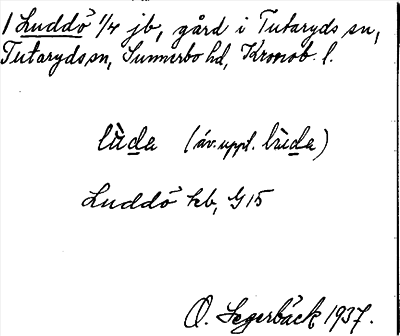 1 Luddö 1/4 jb, gård i Tutaryds sn,
Tutaryds sn, Sunnerbo hd, Kronob. l.
lùda (äv. uppt. lùda)
Luddö kb, G15
O. Segerbäck 1937.